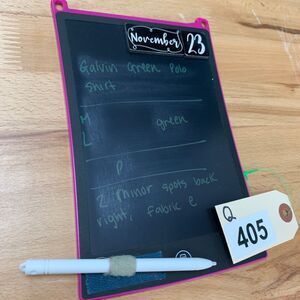 November 23
Galvin Green Polo
shirt
M green
L
P
2 minor spots back
right, fabric e
Q
405